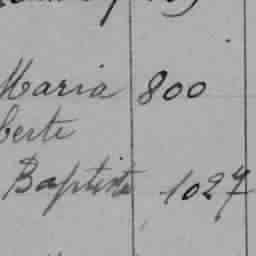 Maria 800
berte
Baptiste 1027